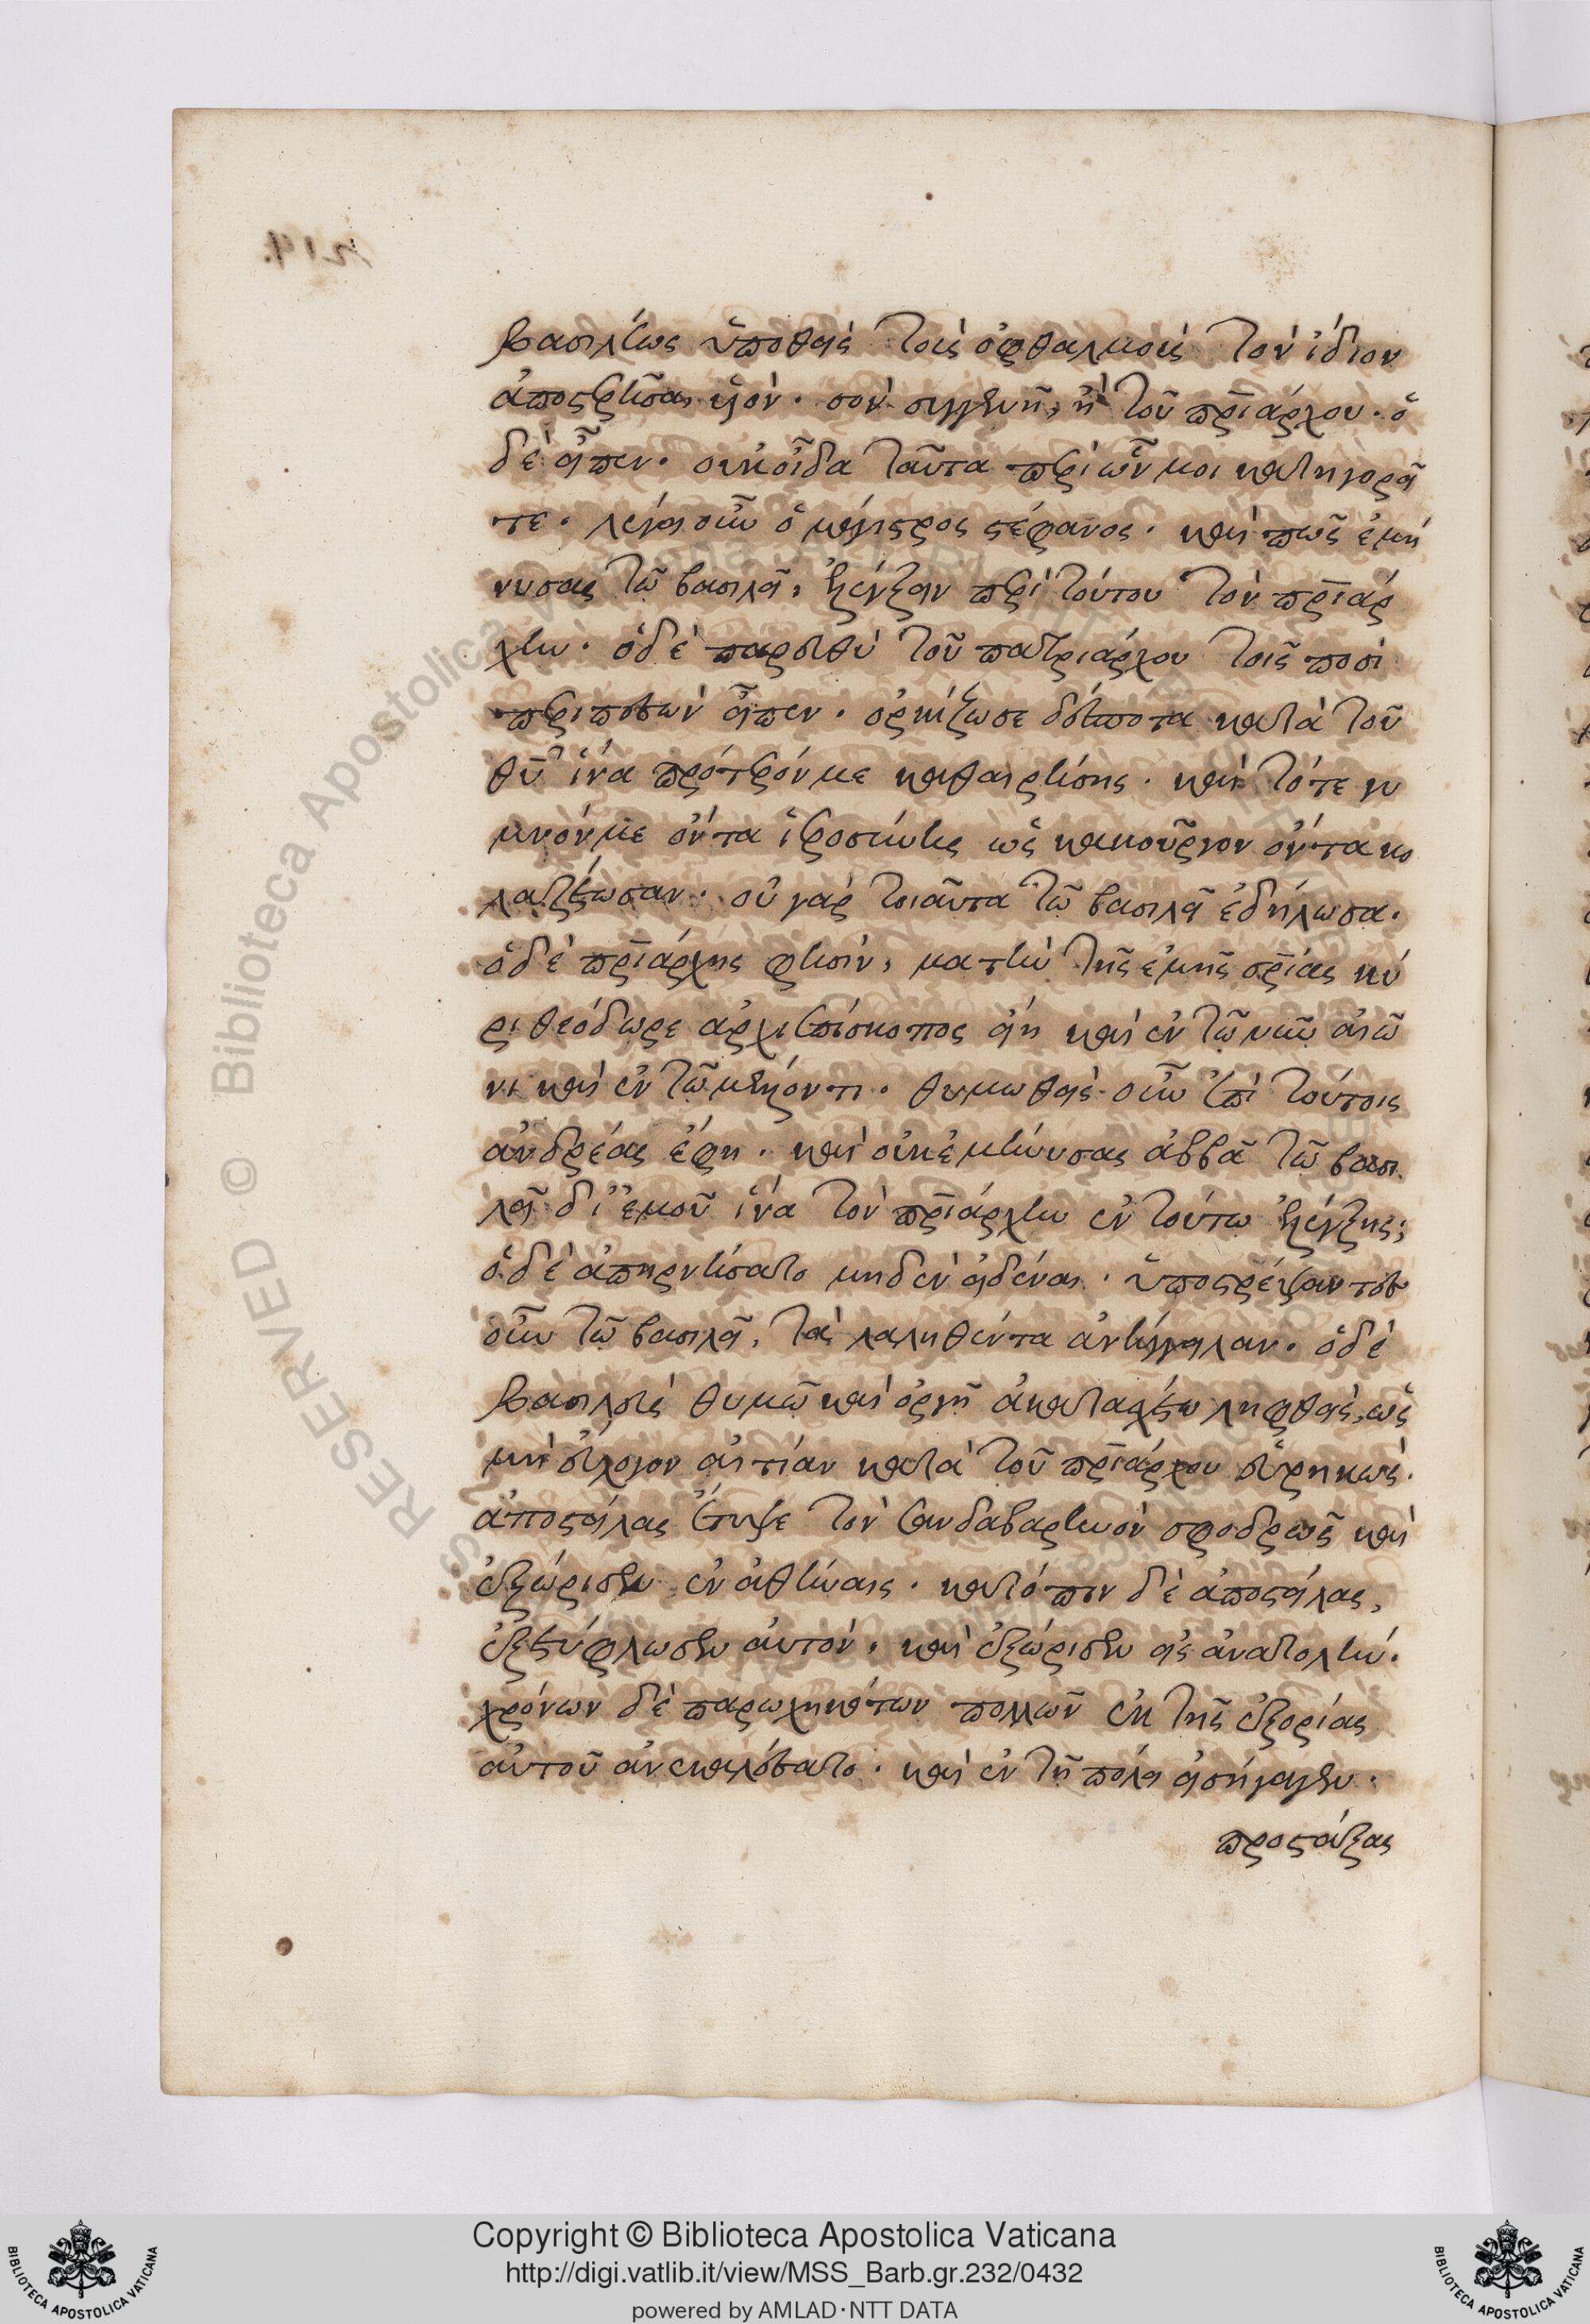 βασιλέως ὑποθεὶς τοῖς ὀφθαλμοῖς τὸν ἴδιον
ἀποστερῆσαι υἱόν. σὸν συγγενῆ, ἢ τοῦ πρ̅ιάρχου. ὁ
δὲ εἶπεν. οὐκ οἶδα ταῦτα περὶ ὧν μοι κατηγορεῖ
τε. λέγει οὖν ὁ μάγιστρος στέφανος. καὶ πῶς ἐμή
νυσας τῶ βασιλεῖ, ἐλέγξειν περὶ τούτου τὸν πρ̅ιάρ
χην. ὁ δὲ παρευθὺ τοῦ πατριάρχου τοῖς ποσὶ
περιπεσὼν εἶπεν. ὁρκίζω σε δέσποτα κατὰ τοῦ
θῦ ἵνα πρότερόν με καθαιρήσης. καὶ τότε γυ
μνόν με ὄντα ἱεροσύνης ὡς κακοῦργον ὄντα κο
λαζέτωσαν. οὐ γὰρ τοιαῦτα τῶ βασιλεῖ ἐδήλωσα.
ὁ δὲ πρ̅ιάρχης φησὶν, μὰ τὴν τῆς ἐμῆς σρ̅ίας κύ
ρι θεόδωρε ἀρχιεπίσκοπος εἶ καὶ ἐν τῶ νῦν αἰῶ
νι καὶ ἐν τῶ μέλλοντι. θυμωθεὶς οὖν ἐπὶ τούτοις
ἀνδρέας ἔφη. καὶ οὐκ ἐμήνυσας ἀββᾶ τῶ βασι
λεῖ δι' ἐμοῦ ἵνα τὸν πρ̅ιάρχην ἐν τούτω ἐλέγξης;
ὁ δὲ ἀπηρνήσατο μηδὲν εἰδέναι. ὑποστρέψαντες
οὖν τῶ βασιλεῖ, τὰ λαληθέντα ἀνήγγειλαν. ὁ δὲ
βασιλεὺς θυμῶ καὶ ὀργῆ ἀκατασχέτω ληφθεὶς, ὡς
μὴ εὔλογον αἰτίαν κατὰ τοῦ πρ̅ιάρχου εὑρηκὼς.
ἀποστείλας ἔτυψε τὸν σανδαβαρηνὸν σφοδρῶς καὶ
ἐξώρισεν ἐν ἀθήναις. κατόπιν δὲ ἀποστείλας,
ἐξετύφλωσεν αὐτόν. καὶ ἐξώρισεν εἰς ἀνατολήν.
χρόνων δὲ παρωχηκότων πολλῶν ἐκ τῆς ἐξορίας
αὐτοῦ ἀνεκαλέσατο. καὶ ἐν τῆ πόλει εἰσήγαγεν.
προστάξας
Copyright © Biblioteca Apostolica Vaticana
http://digi.vatlib.it/view/MSS_Barb.gr.232/0432
powered by AMLAD·NTT DATA